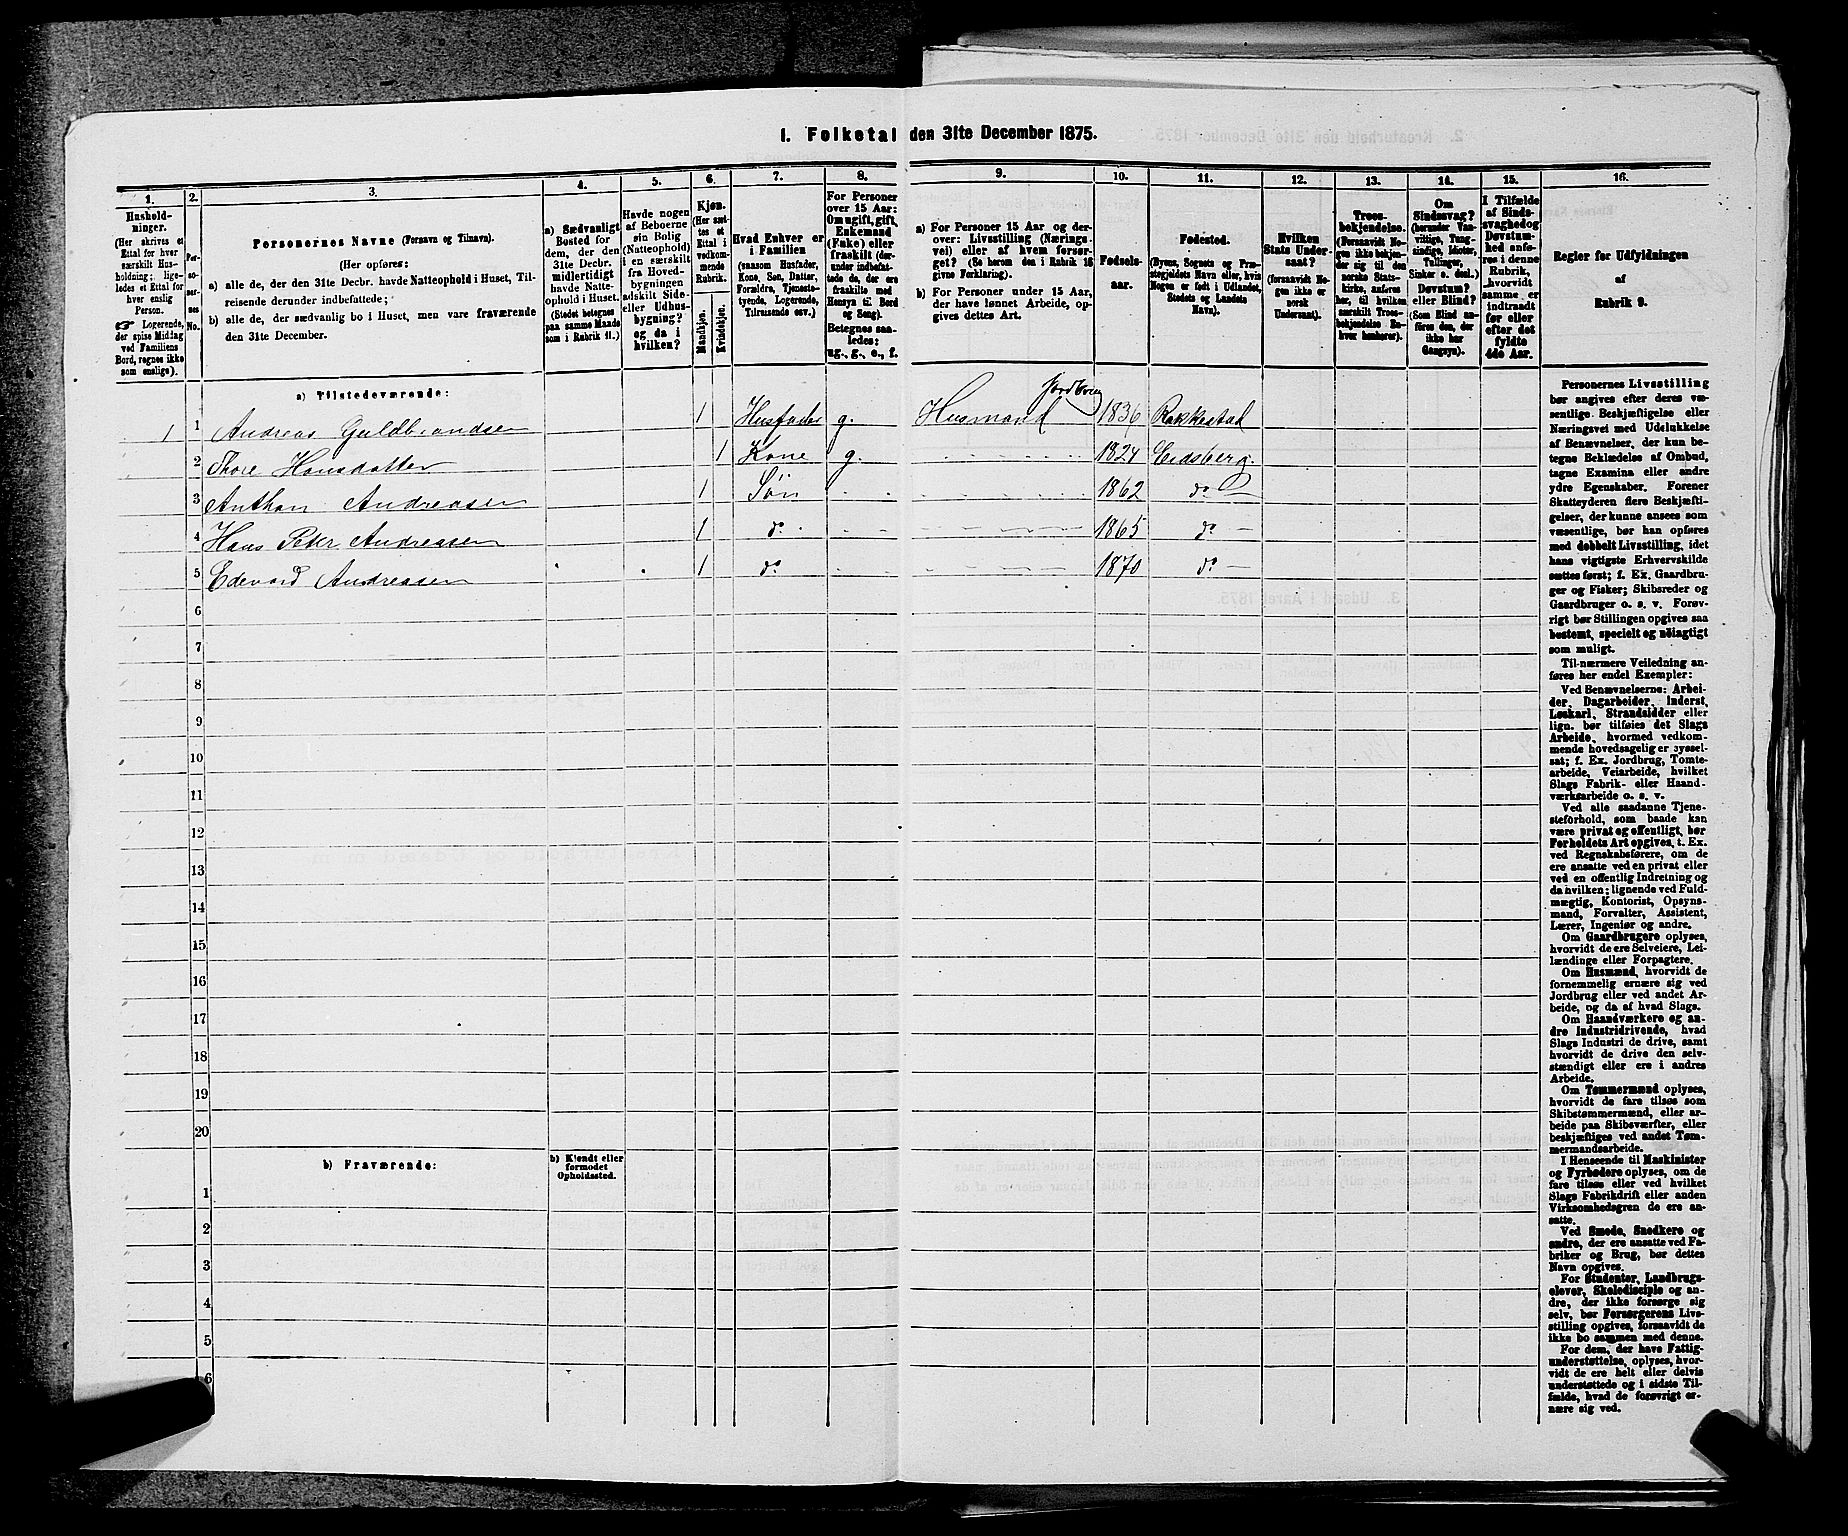 1. Folketal den 31te December 1875.
1.
Hushold-
ninger.
(Her skrives et
Ettal for hver
særskilt Hus-
holdning; lige-
ledes et Ettal for
hver enslig
Person.
☞ Logerende,
der spise Middag
ved Familiens
Bord, regnes ikke
som enslige).
2.
Per-
so-
ner-
nes
No.
3.
Personernes Navne (Fornavn og Tilnavn).
(Her opføres:
a) alle de, der den 31te Decbr. havde Natteophold i Huset, Til-
reisende derunder indbefattede;
b) alle de, der sædvanlig bo i Huset, men vare fraværende
den 31te December.
4.
a) Sædvanligt
Bosted for
dem, der den
31te Decbr.
midlertidigt
havde Natte-
ophold i Huset.
(Stedet betegnes
paa samme Maade
som i Rubrik 11.)
5.
Havde nogen
af Beboerne
sin Bolig
(Natteophold)
i en særskilt
fra Hoved-
bygningen
adskilt Side-
eller Udhus-
bygning?
og da i
hvilken?
6.
Kjøn.
(Her sæt-
tes et
Ettal i
vedkom-
mende
Rubrik.
Mandkjøn.
Kvindekjøn.
7.
Hvad Enhver er
i Familien
(saasom Husfader,
Kone, Søn, Datter,
Forældre, Tjeneste-
tyende, Logerende,
Tilreisende osv.)
8.
For Personer
over 15 Aar:
Om ugift, gift,
Enkemand
(Enke) eller
fraskilt (der-
under indbefat-
tede de, der ere
fraskilte med
Hensyn til Bord
og Seng).
Betegnes saa-
ledes:
ug., g., e., f.
9.
a) For Personer 15 Aar og der-
over: Livsstilling (Nærings-
vei) eller af hvem forsør-
get? (Se herom den i Rubrik 16
givne Forklaring).
b) For Personer under 15 Aar,
der have lønnet Arbeide, op-
gives dettes Art.
10.
Fødsels-
aar.
11.
Fødested.
(Byens, Sognets og Præ-
stegjeldets Navn eller, hvis
Nogen er født i Udlandet,
Stedets og Landets
Navn).
12.
Hvilken
Stats Under-
saat?
(forsaavidt No-
gen ikke er
norsk
Undersaat).
13.
Troes-
bekjendelse.
(Forsaavidt No-
gen ikke bekjen-
der sig til den
norske Stats-
kirke, anføres
her, til hvilken
særskilt Troes-
bekjendelse En-
hver henhører).
14.
Om
Sindssvag?
(herunder Van-
vittige, Tung-
sindige, Idioter,
Tullinger,
Sinker o. desl.)
Døvstum?
eller Blind?
(Som Blind an-
føres den, der
ikke har
Gangsyn).
15.
I Tilfælde
af Sinds-
svaghed og
Døvstum-
hed anfø-
res i denne
Rubrik,
hvorvidt
samme er
indtraadt
før eller
efter det
fyldte
4de Aar.
16.
Regler for Udfyldningen
af
Rubrik 9.
a) Tilstedeværende:
1 1 Andreas Guldbrandsen 1 Husfader g. Husmand Jordbrug 1836 Rakkestad
2 Thore Hansdatter 1 Kone g. 1824 Eidsberg.
3 Anthon Andreasen 1 Søn 1862 do
4 Hans Peter Andreasen 1 do 1865 do
5 Edevard Andreasen 1 do 1870 do
6
7
8
9
10
11
12
13
14
15
16
17
18
19
20
b) Fraværende:
b) Kjendt eller
formodet
Opholdssted.
1
2
3
4
5
6
Personernes Livsstilling
bør angives efter deres væ-
sentlige Beskjæftigelse eller
Næringsvei med Udelukkelse
af Benævnelser, der kun be-
tegne Beklædelse af Ombud,
tagne Examina eller andre
ydre Egenskaber. Forener
Skatteyderen flere Beskjæfti-
gelser, der kunne ansees som
væsentlige, bør han opføres
med dobbelt Livsstilling, idet
hans vigtigste Erhvervskilde
sættes først; f. Ex. Gaardbru-
ger og Fisker; Skibsreder og
Gaardbruger o. s. v. Forøv-
rigt bør Stillingen opgives saa
bestemt, specielt og nøiagtigt
som muligt.
Til nærmere Veiledning an-
føres her endel Exempler:
Ved Benævnelserne: Arbei-
der, Dagarbeider, Inderst,
Løskarl, Strandsidder eller
lign. bør tilføies det Slags
Arbeide, hvormed vedkom-
mende hovedsagelig er syssel-
sat; f. Ex. Jordbrug, Tomte-
arbeide, Veiarbeide, hvilket
Slags Fabrik- eller Haand-
værksarbeide o. s. v.
Ved alle saadanne Tjene-
steforhold, som baade kan
være privat og offentligt, bør
Forholdets Art opgives, t. Ex.
ved Regnskabsførere, om de
ere ansatte ved en privat eller
ved en offentlig Indretning og
da hvilken; lignende ved Fuld-
mægtig, Kontorist, Opsyns-
mand, Forvalter, Assistent,
Lærer, Ingeniør og andre.
Om Gaardbrugere oplyses,
hvorvidt de ere Selveiere, Lei-
lændinge eller Forpagtere.
Om Husmænd, hvorvidt de
fornemmelig ernære sig ved
Jordbrug eller ved andet Ar-
beide, og da af hvad Slags.
Om Haandværkere og an-
dre Industridrivende, hvad
Slags Industri de drive, samt
hvorvidt de drive den selv-
stændigt eller ere i andres
Arbeide.
Om Tømmermænd oplyses,
hvorvidt de fare tilsøs som
Skibstømmermænd, eller ar-
beide paa Skibsværfter, eller
beskjæftiges ved andet Tøm-
mermandsarbeide.
I Henseende til Maskinister
og Fyrbødere oplyses, om de
fare tilsøs eller ved hvilket
Slags Fabrikdrift eller anden
Virksomhedsgren de ere an-
satte.
Ved Smede, Snedkere og
andre, der ere ansatte ved Fa-
briker og Brug, bør dettes
Navn opgives.
For Studenter, Landbrugs-
elever, Skoledisciple og an-
dre, der ikke forsørge sig
selv, bør Forsørgerens Livs-
stilling opgives, forsaavidt de
ikke bo sammen med denne.
For dem, der have Fattig-
understøttelse, oplyses, hvor-
vidt de ere helt eller delvis
understøttede og i sidste Til-
fælde, hvad de forøvrigt er-
nære sig ved.